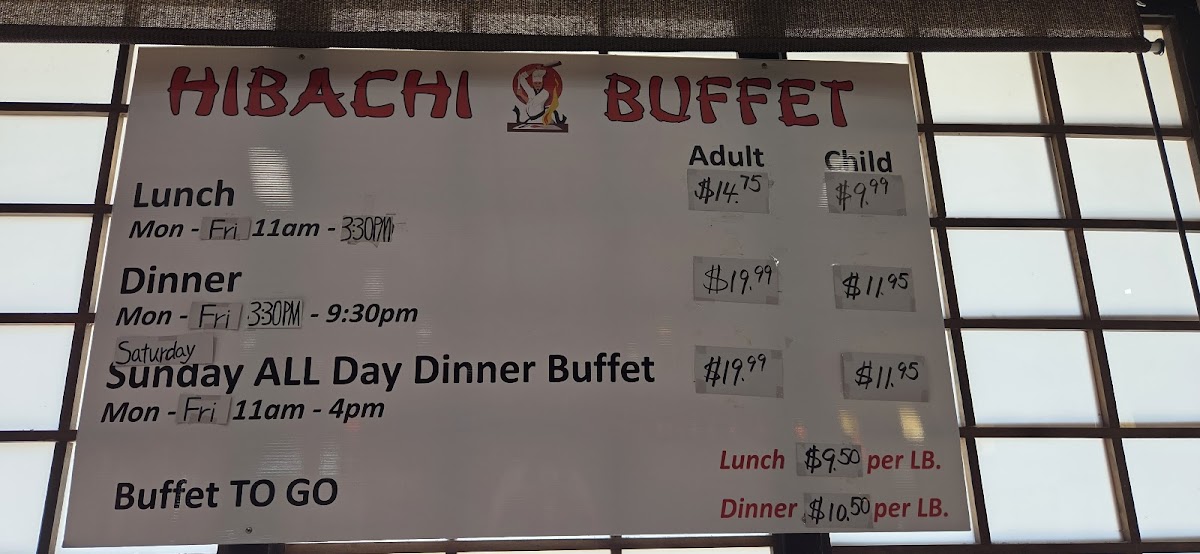 HIBACHI BUFFET
Adult Child
Lunch $14.75 $9.99
Mon - Fri 11am - 3:30PM
Dinner $19.99 $11.95
Mon - Fri 3:30PM - 9:30pm
Saturday
Sunday ALL Day Dinner Buffet $19.99 $11.95
Mon - Fri 11am - 4pm
Lunch $9.50 per LB.
Buffet TO GO
Dinner $10.50 per LB.